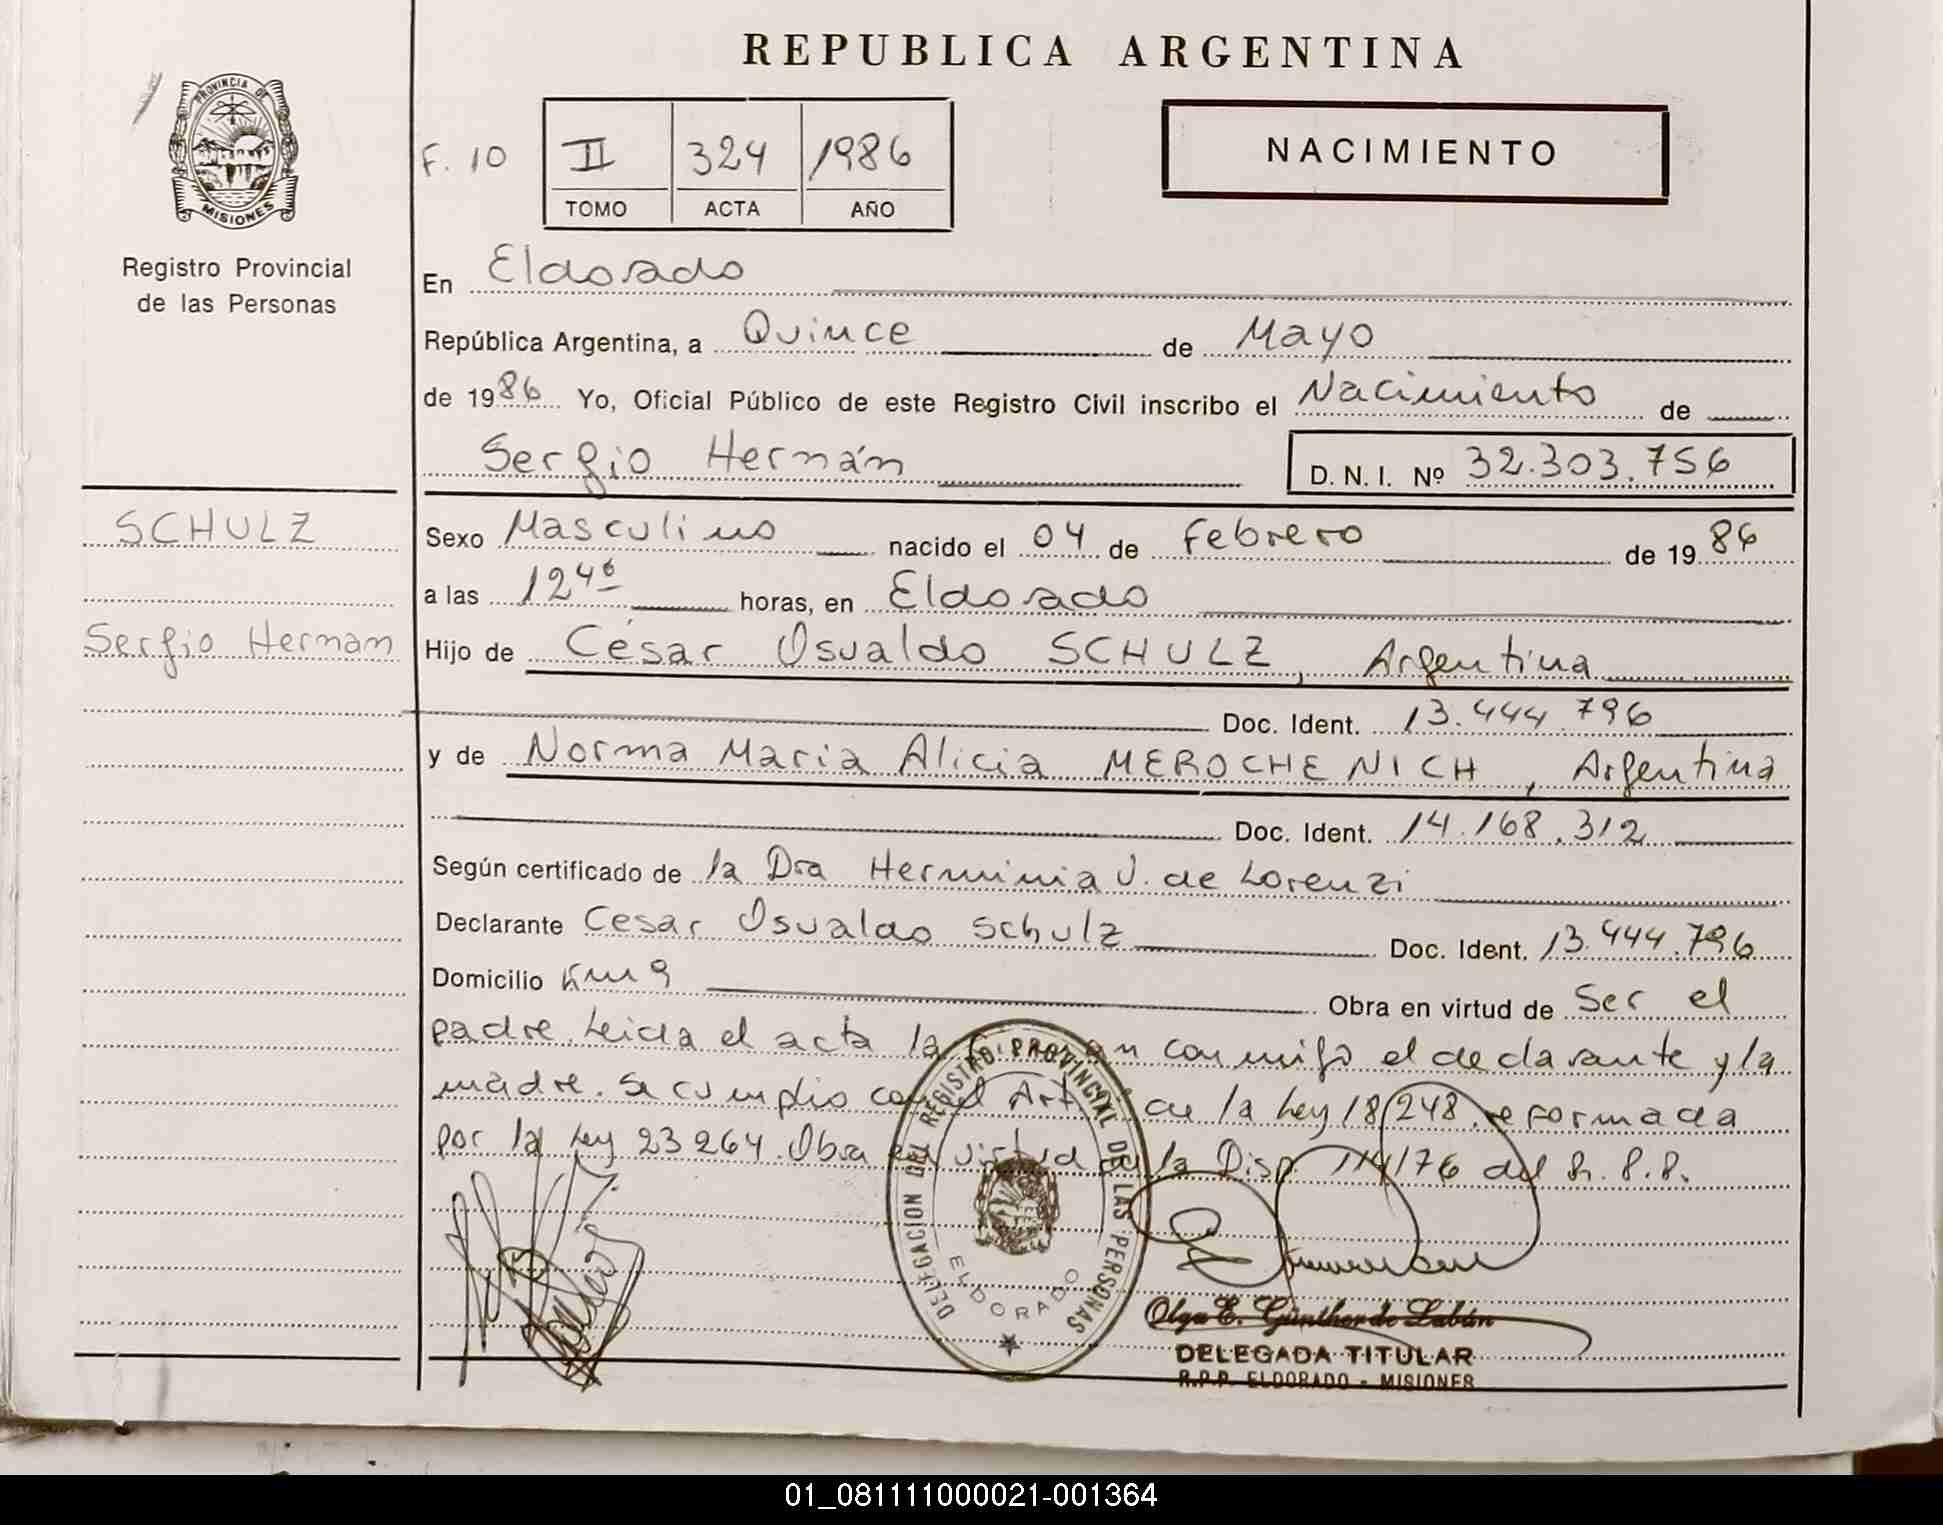 REPUBLICA ARGENTINA
PROVINCIA DE
MISIONES
Registro Provincial
de las Personas
F. 10 II 324 1986
TOMO ACTA AÑO
NACIMIENTO
En Eldorado
República Argentina, a Quince de Mayo
de 1986 Yo, Oficial Público de este Registro Civil inscribo el Nacimiento de
Sergio Hernán D. N. I. Nº 32.303.756
SCHULZ
Sergio Hernan
Sexo Masculino nacido el 04 de Febrero de 1986
a las 12 46 horas, en Eldorado
Hijo de César Osvaldo SCHULZ, Argentina
Doc. Ident. 13.444.796
y de Norma Maria Alicia MEROCHENICH, Argentina
Doc. Ident. 14.168.312
Según certificado de la Dra Herminia J. de Lorenzi
Declarante Cesar Osvaldo Schulz Doc. Ident. 13.444.796
Domicilio Km 9 Obra en virtud de Ser el
padre. Leida el acta la conmigo el declarante y la
madre. Se cumplio con el Art de la Ley 18.248 reformada
por la Ley 23264. Obra en virtud de la Disp. 114/76 del R.P.P.
DELEGACION DEL REGISTRO PROVINCIAL DE LAS PERSONAS
ELDORADO
Olga E. Günther de Labán
DELEGADA TITULAR
R.P.P. ELDORADO - MISIONES
01_081111000021-001364